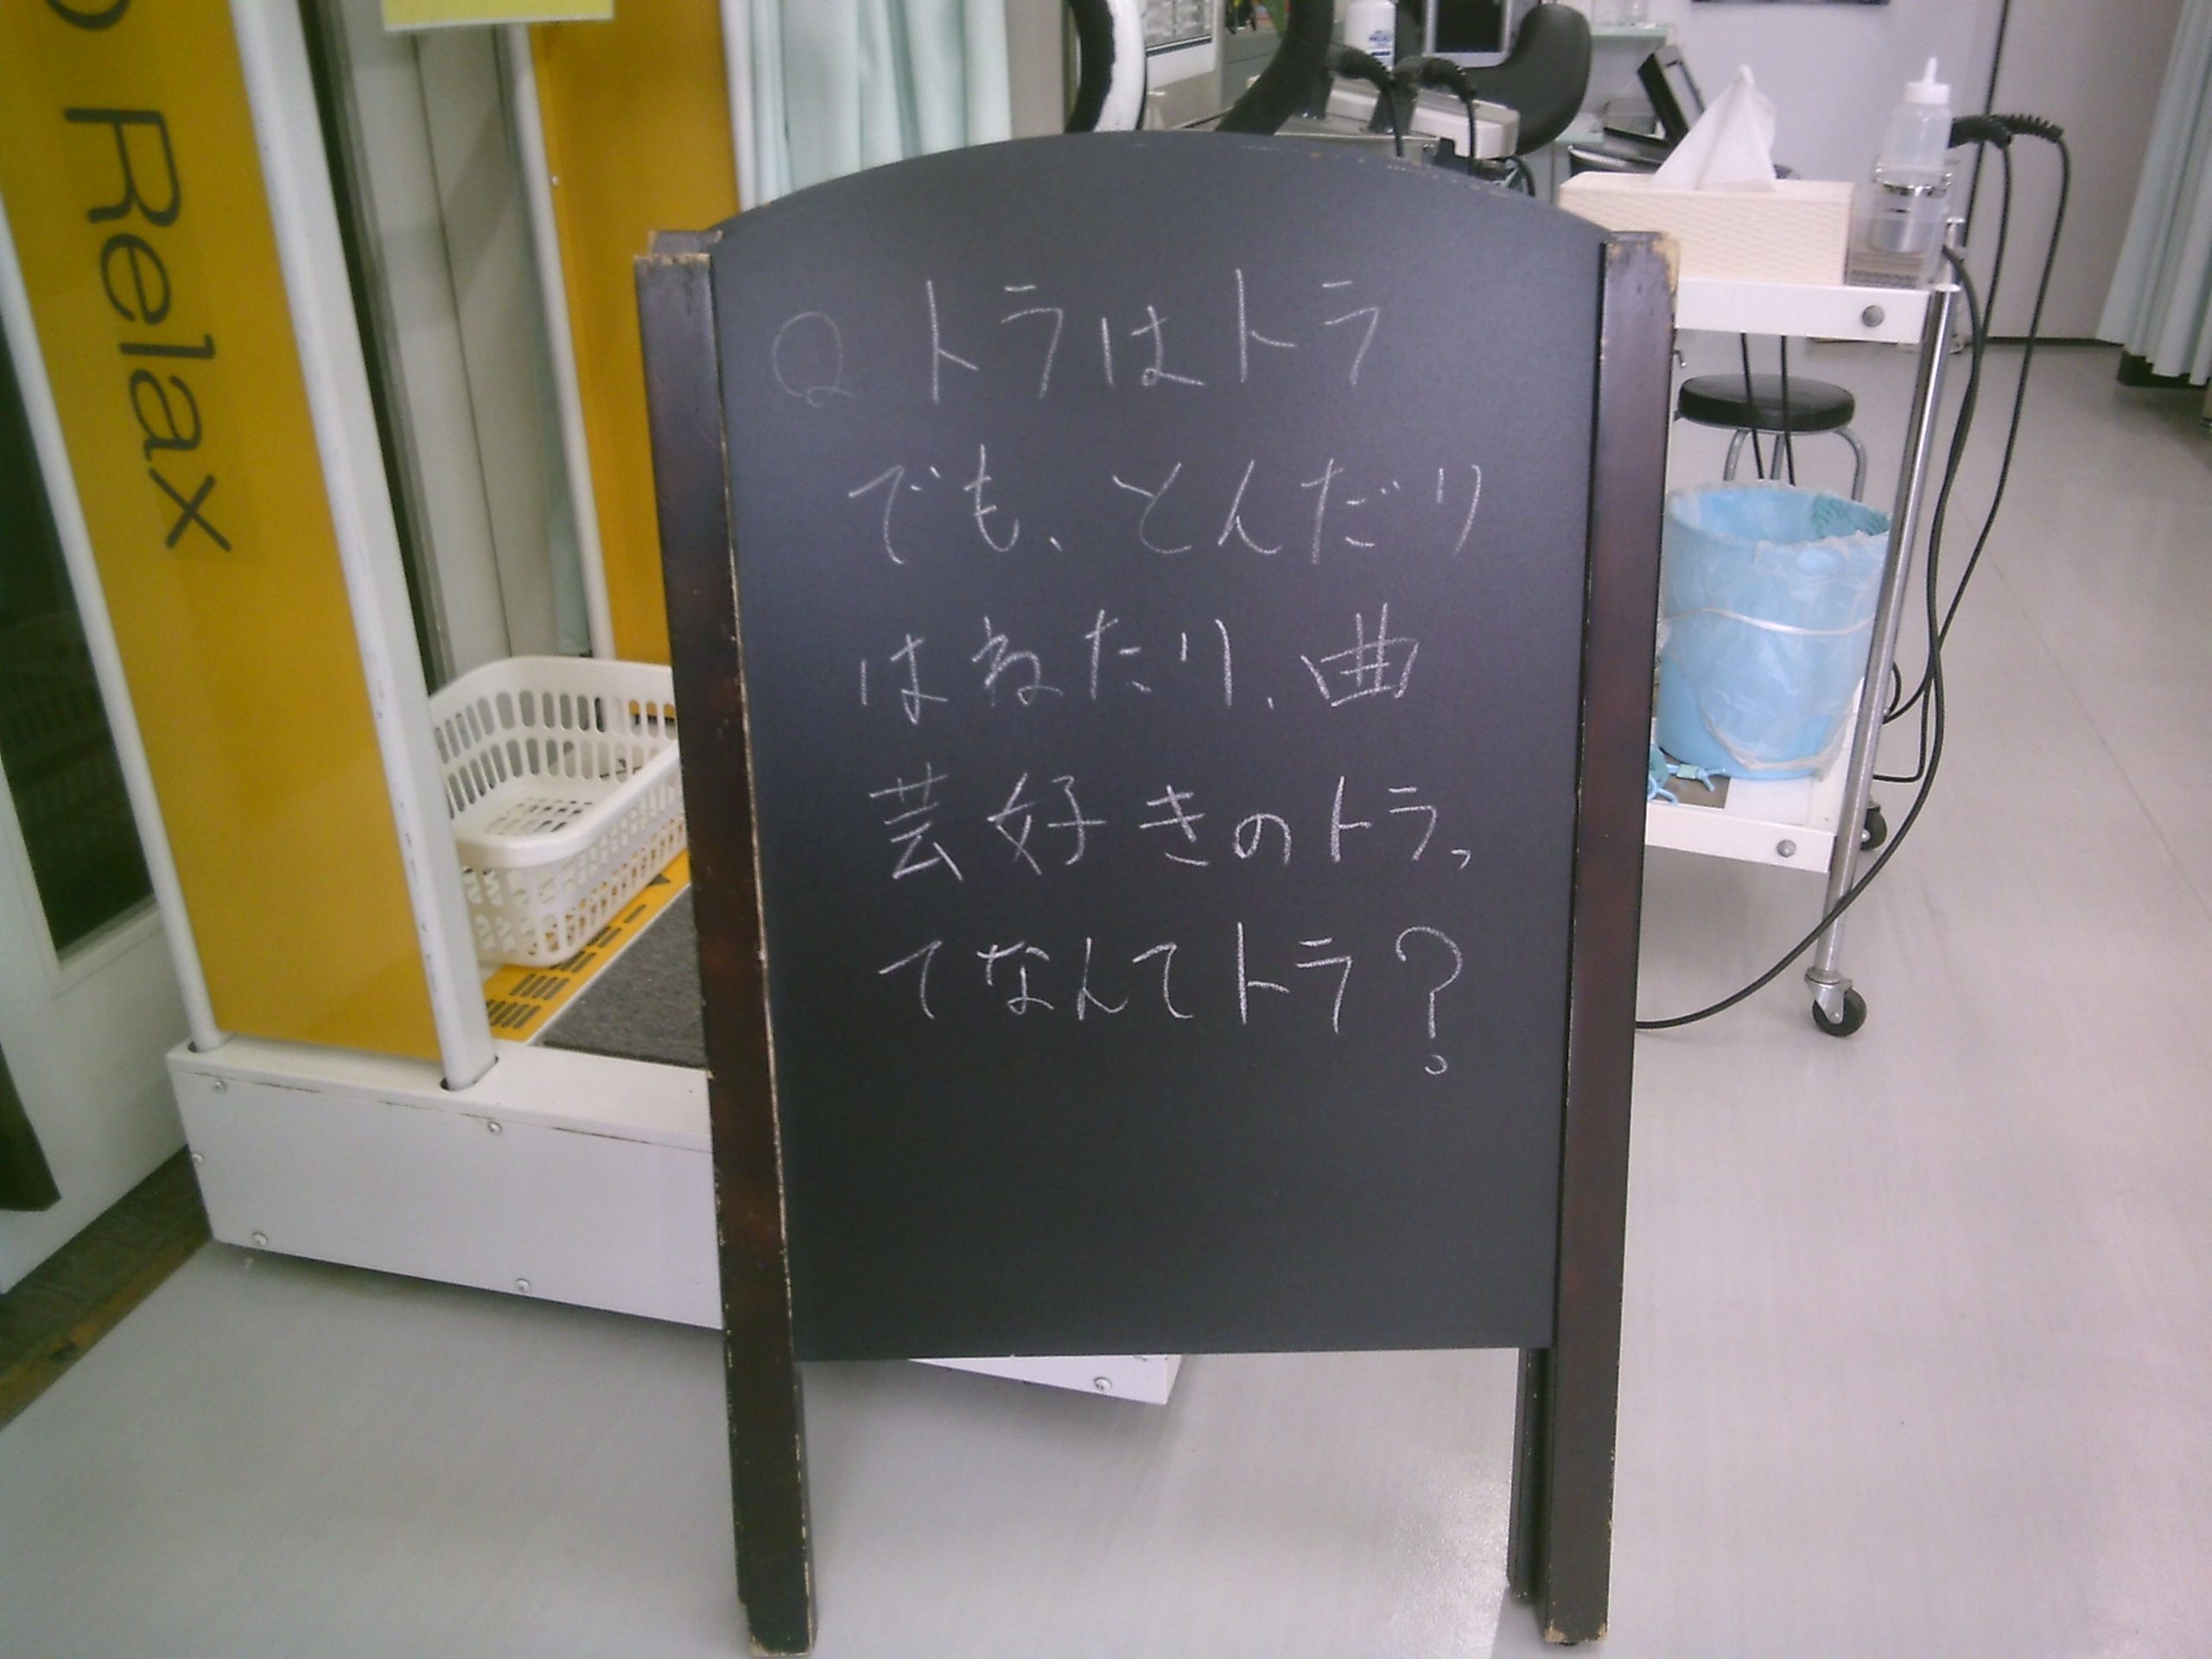 Relax
Q トラはトラ
でも、とんだり
はねたり、曲
芸好きのトラっ
てなんてトラ?